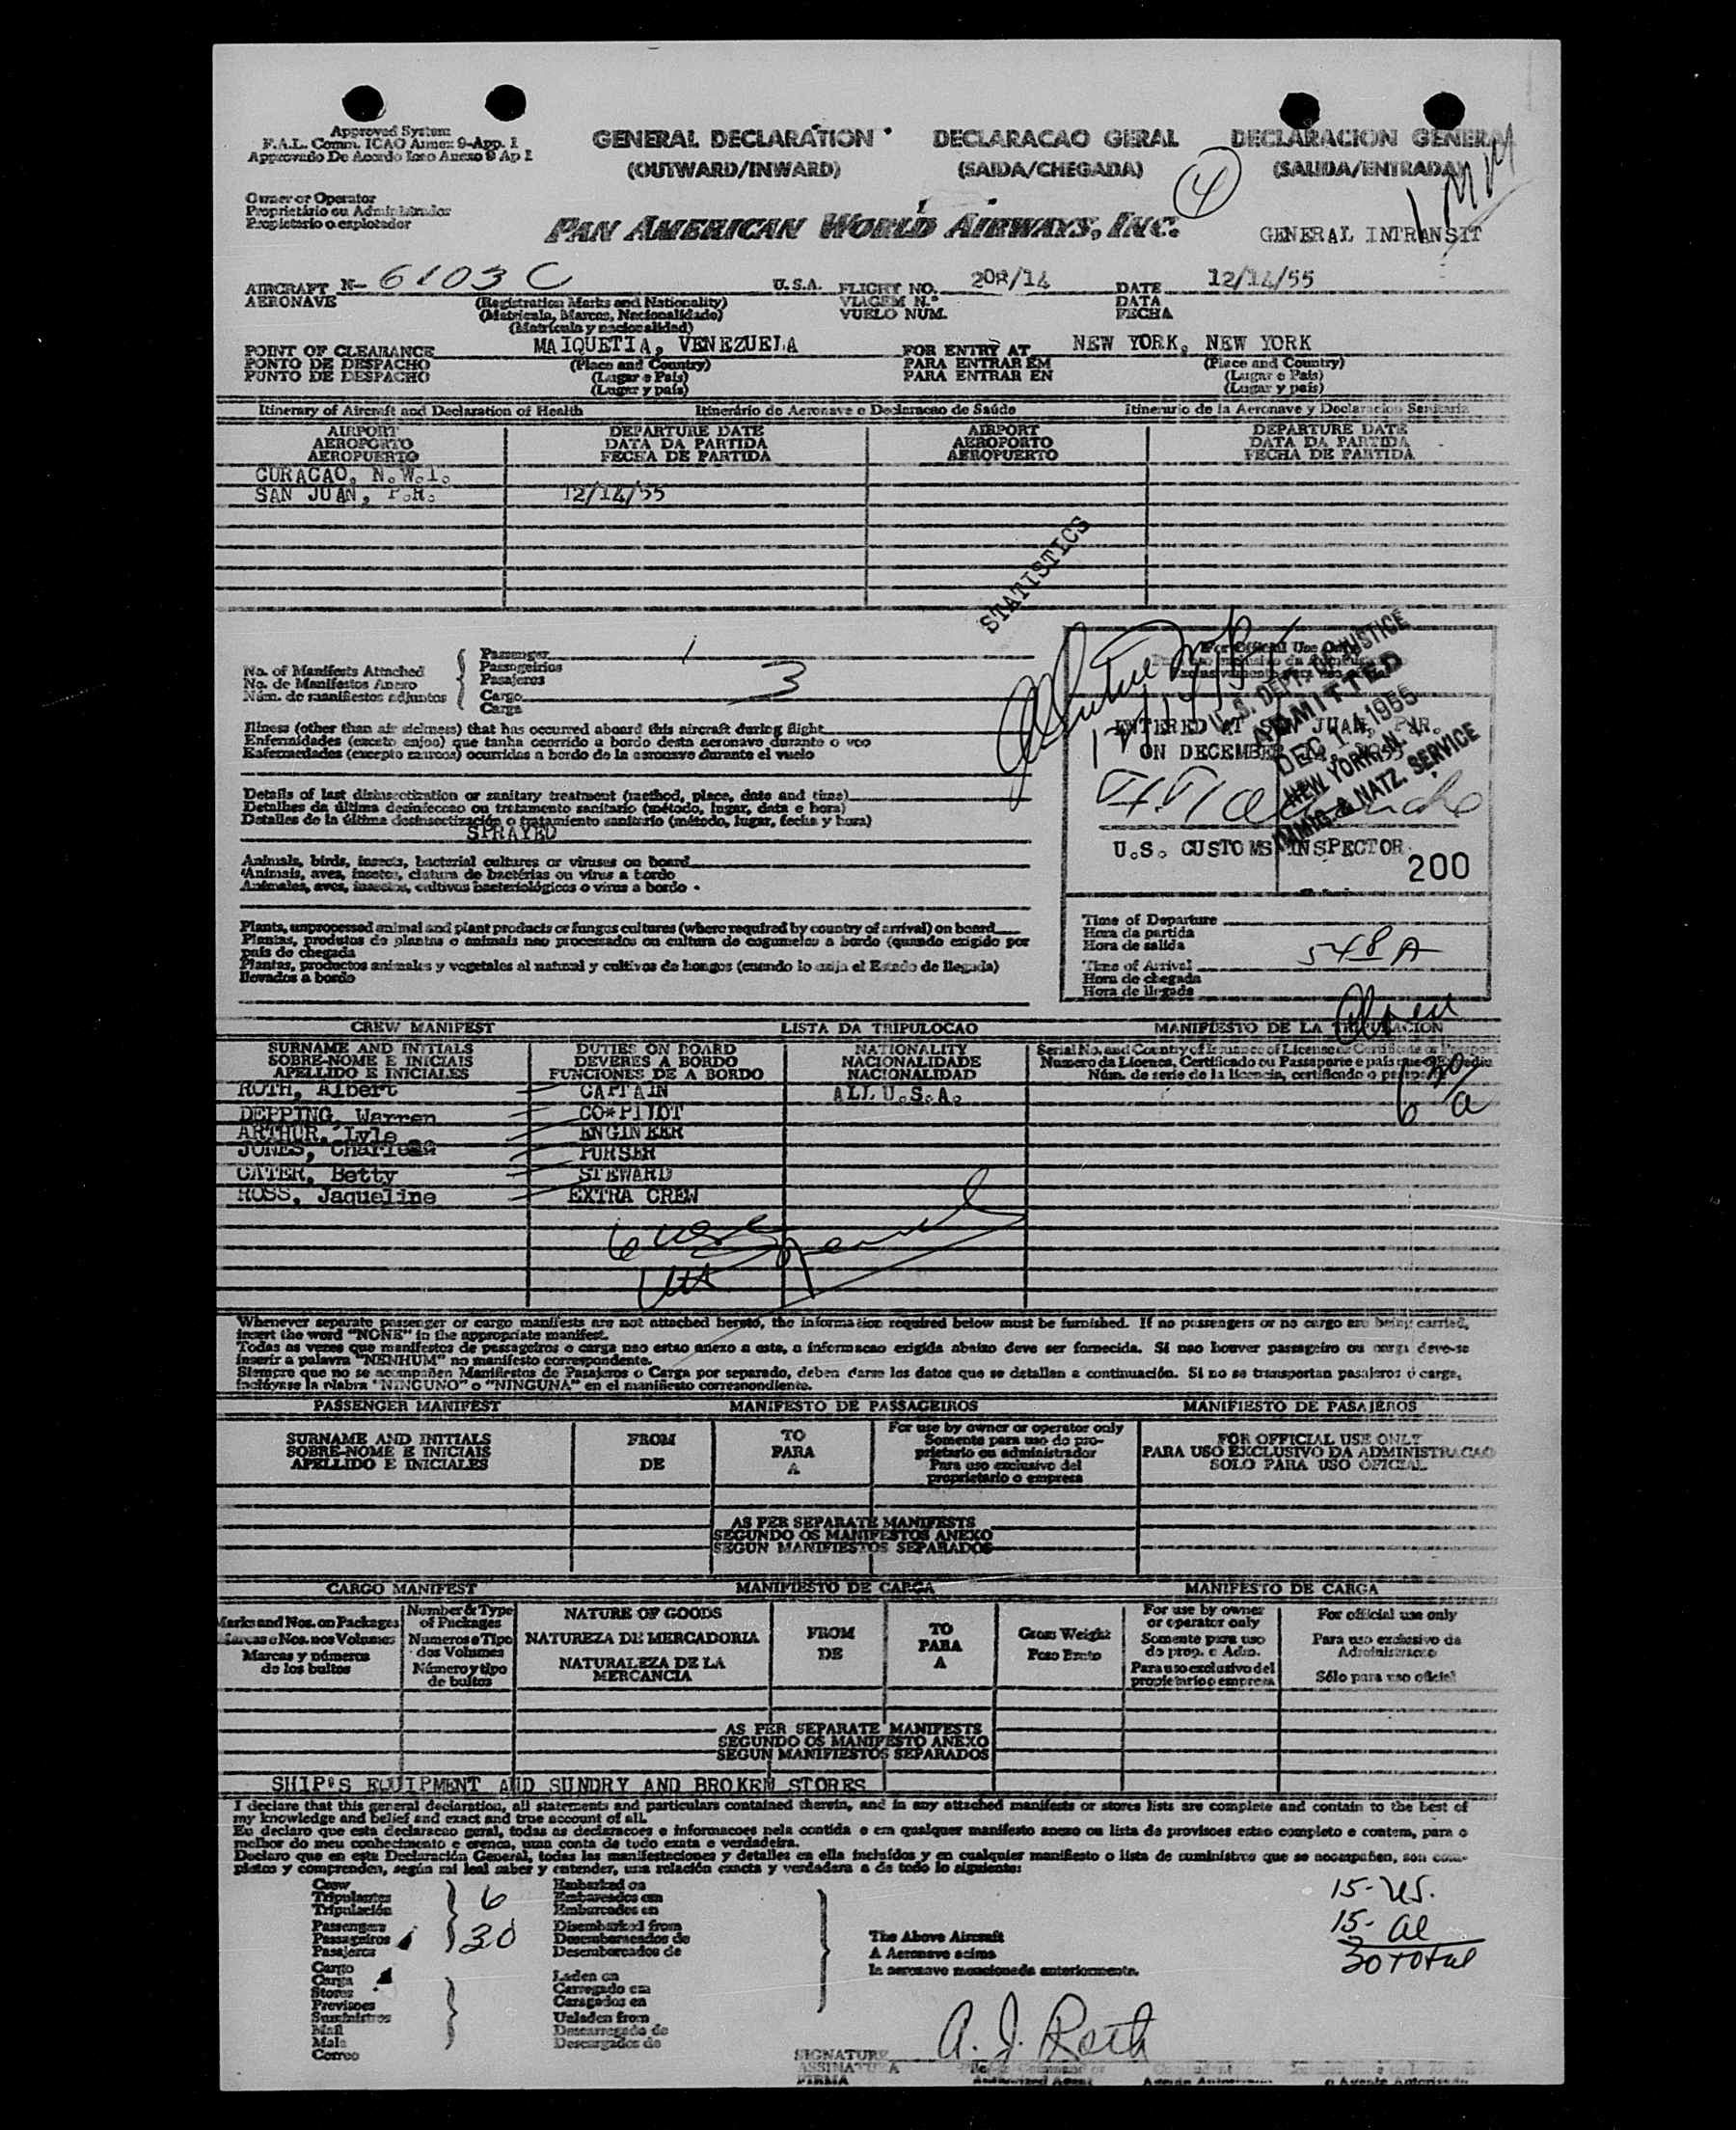 Approved System
F.A.L. Comm. ICAO Annex 9-App. 1
Approvado De Acordo Icao Anexo 9 Ap 1
GENERAL DECLARATION
(OUTWARD/INWARD)
DECLARACAO GERAL
(SAIDA/CHEGADA)
DECLARACION GENERAL
(SALIDA/ENTRADA)
4
Owner or Operator
Proprietário ou Administrador
Propietario o explotador
PAN AMERICAN WORLD AIRWAYS, INC.
GENERAL INTRANSIT
AIRCRAFT N- 6103C U.S.A. FLIGHT NO. 208/14 DATE 12/14/55
AERONAVE (Registration Marks and Nationality) VIAGEM N.° DATA
(Matricula, Marcas, Nacionalidade) VUELO NUM. FECHA
(Matrícula y nacionalidad)
POINT OF CLEARANCE MAIQUETIA, VENEZUELA FOR ENTRY AT NEW YORK, NEW YORK
PONTO DE DESPACHO (Place and Country) PARA ENTRAR EM (Place and Country)
PUNTO DE DESPACHO (Lugar e País) PARA ENTRAR EN (Lugar e País)
(Lugar y país) (Lugar y país)
Itinerary of Aircraft and Declaration of Health Itinerário de Aeronave e Declaracao de Saúde Itinerario de la Aeronave y Declaracion Sanitaria
AIRPORT DEPARTURE DATE AIRPORT DEPARTURE DATE
AEROPORTO DATA DA PARTIDA AEROPORTO DATA DA PARTIDA
AEROPUERTO FECHA DE PARTIDA AEROPUERTO FECHA DE PARTIDA
CURACAO, N.W.I.
SAN JUAN, P.R. 12/14/55
STATISTICS
No. of Manifests Attached
No. de Manifestos Anexo
Núm. de manifiestos adjuntos
Passenger 1
Passageiros
Pasajeros
Cargo 3
Carga
For Official Use Only
U.S. DEPT. OF JUSTICE
ADMITTED
DEC 14 1955
NEW YORK, N.Y.
IMMIG. & NATZ. SERVICE
ENTERED AT SAN JUAN, P.R.
ON DECEMBER
U.S. CUSTOMS INSPECTOR
200
Illness (other than air sickness) that has occurred aboard this aircraft during flight
Enfermidades (exceto enjoo) que tenha ocorrido a bordo desta aeronave durante o voo
Enfermedades (excepto mareos) ocurridas a bordo de la aeronave durante el vuelo
Details of last disinsectization or sanitary treatment (method, place, date and time)
Detalhes da última desinfeccao ou tratamento sanitario (método, lugar, data e hora)
Detalles de la última desinsectización o tratamiento sanitario (método, lugar, fecha y hora)
SPRAYED
Animals, birds, insects, bacterial cultures or viruses on board
Animais, aves, insetos, clutura de bactérias ou virus a bordo
Animales, aves, insectos, cultivos bacteriológicos o virus a bordo
Plants, unprocessed animal and plant products or fungus cultures (where required by country of arrival) on board
Plantas, produtos de plantas e animais nao processados ou cultura de cogumelos a bordo (quando exigido por
país de chegada
Plantas, productos animales y vegetales al natural y cultivos de hongos (cuando lo exija el Estado de llegada)
llevados a bordo
Time of Departure
Hora da partida
Hora de salida
548 A
Time of Arrival
Hora de chegada
Hora de llegada
CREW MANIFEST LISTA DA TRIPULOCAO MANIFIESTO DE LA TRIPULACION
SURNAME AND INITIALS DUTIES ON BOARD NATIONALITY Serial No. and Country of Issuance of License or Certificate or Passport
SOBRE-NOME E INICIAIS DEVERES A BORDO NACIONALIDADE Numero da Licenca, Certificado ou Passaporte e país que O Expediu
APELLIDO E INICIALES FUNCIONES DE A BORDO NACIONALIDAD Núm. de serie de la licencia, certificado o pasaporte
ROTH, Albert CAPTAIN ALL U.S.A.
DEPPING, Warren CO*PILOT
ARTHUR, Lyle ENGINEER
JONES, Charles PURSER
CATER, Betty STEWARD
ROSS, Jaqueline EXTRA CREW
Whenever separate passenger or cargo manifests are not attached hereto, the information required below must be furnished. If no passengers or no cargo are being carried,
insert the word "NONE" in the appropriate manifest.
Todas as vezes que manifestos de passageiros o carga nao estao anexo a esta, a informacao exigida abaixo deve ser fornecida. Si nao houver passageiro ou carga deve-se
inserir a palavra "NENHUM" no manifesto correspondente.
Siempre que no se acompañen Manifiestos de Pasajeros o Carga por separado, deben darse los datos que se detallan a continuación. Si no se transportan pasajeros o carga,
inclúyase la plabra "NINGUNO" o "NINGUNA" en el manifiesto correspondiente.
PASSENGER MANIFEST MANIFESTO DE PASSAGEIROS MANIFIESTO DE PASAJEROS
SURNAME AND INITIALS
SOBRE-NOME E INICIAIS
APELLIDO E INICIALES
FROM
DE
TO
PARA
A
For use by owner or operator only
Somente para uso do pro-
prietario ou administrador
Para uso exclusivo del
proprietario o empresa
FOR OFFICIAL USE ONLY
PARA USO EXCLUSIVO DA ADMINISTRACAO
SOLO PARA USO OFICIAL
AS PER SEPARATE MANIFESTS
SEGUNDO OS MANIFESTOS ANEXO
SEGUN MANIFIESTOS SEPARADOS
CARGO MANIFEST MANIFIESTO DE CARGA MANIFESTO DE CARGA
Marks and Nos. on Packages
Marcas e Nos. nos Volumes
Marcas y números
de los bultos
Number & Type
of Packages
Numeros e Tipo
dos Volumes
Número y tipo
de bultos
NATURE OF GOODS
NATUREZA DE MERCADORIA
NATURALEZA DE LA
MERCANCIA
FROM
DE
TO
PARA
A
Gross Weight
Peso Bruto
For use by owner
or operator only
Somente para uso
do prop. e Adm.
Para uso exclusivo del
propietario o empresa
For official use only
Para uso exclusivo da
Administracao
Sólo para uso oficial
AS PER SEPARATE MANIFESTS
SEGUNDO OS MANIFESTO ANEXO
SEGUN MANIFIESTOS SEPARADOS
SHIP'S EQUIPMENT AND SUNDRY AND BROKEN STORES
I declare that this general declaration, all statements and particulars contained therein, and in any attached manifests or stores lists are complete and contain to the best of
my knowledge and belief and exact and true account of all.
Eu declaro que esta declaracao geral, todas as declaracoes e informacoes nela contida e em qualquer manifesto anexo ou lista de provisoes estao completo e contem, para o
melhor do meu conhecimento e crenca, uma conta de tudo exata e verdadeira.
Declaro que en esta Declaración General, todas las manifestaciones y detalles en ella incluidos y en cualquier manifiesto o lista de suministros que se acompañen, son com-
pletos y comprenden, según mi leal saber y entender, una relación exacta y verdadera a de todo lo siguiente:
Crew
Tripulantes
Tripulación
6
Passengers
Passageiros
Pasajeros
30
Cargo
Carga
Stores
Previsoes
Suministros
Mail
Mala
Correo
Embarked on
Embarcados em
Embarcados en
Disembarked from
Desembarcados de
Desembarcados de
Laden on
Carregado em
Caragados en
Unladen from
Descarregado de
Descargados de
The Above Aircraft
A Aeronave acima
la aeronave mencionada anteriormente.
15-US.
15-al
30 total
SIGNATURE A. J. Roth
ASSINATURA
FIRMA
Authorized Agent